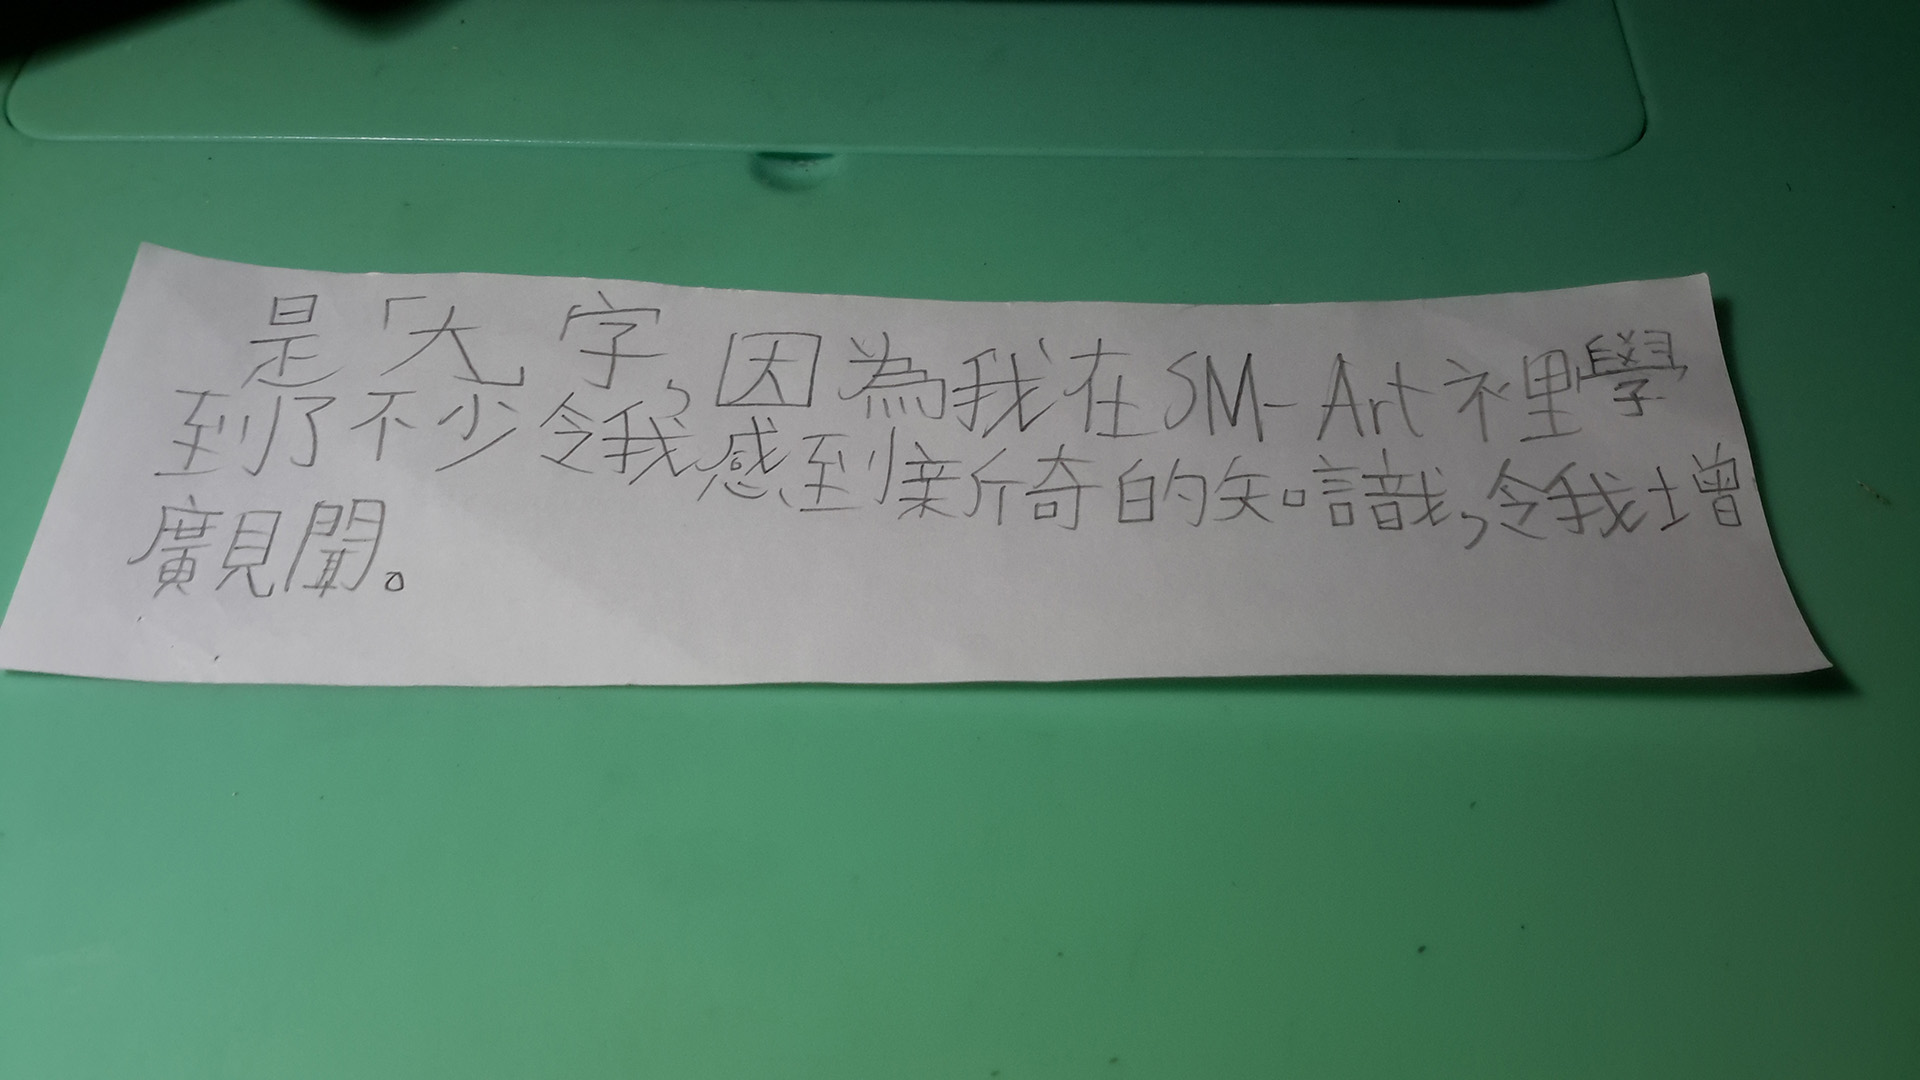 是「大」字,因為我在SM-Art裡學
到了不少令我感到新奇的知識,令我增
廣見聞。